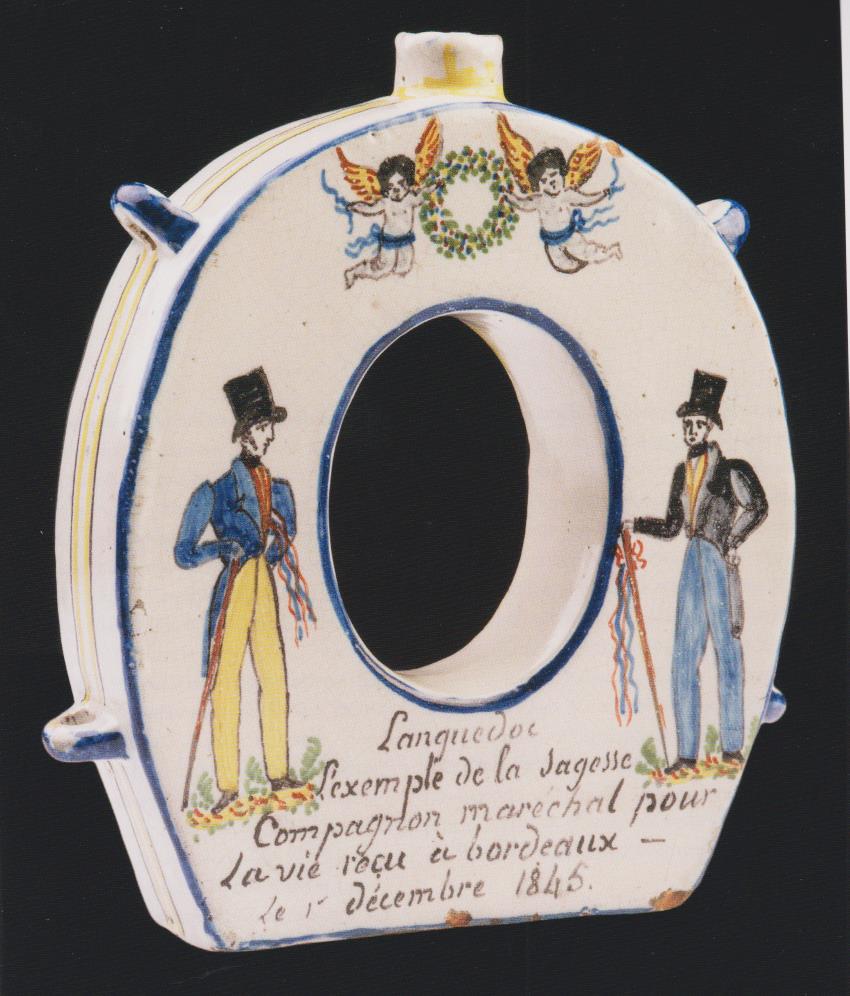 Languedoc
L'exemple de la sagesse
Compagnon maréchal pour
la vie reçu à bordeaux —
Le 1r décembre 1845.